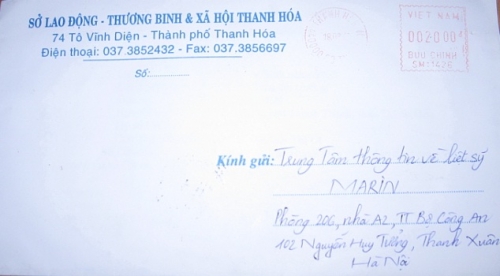 SỞ LAO ĐỘNG - THƯƠNG BINH & XÃ HỘI THANH HÓA
74 Tô Vĩnh Diện - Thành phố Thanh Hóa
Điện thoại: 037.3852432 - Fax: 037.3856697
Số:
VIỆT NAM
002000đ
BƯU CHÍNH
Kính gửi: Trung Tâm thông tin về liệt sỹ
MARIN
Phòng 206, nhà A2, TT Bộ Công An
102 Nguyễn Huy Tưởng, Thanh Xuân
Hà Nội